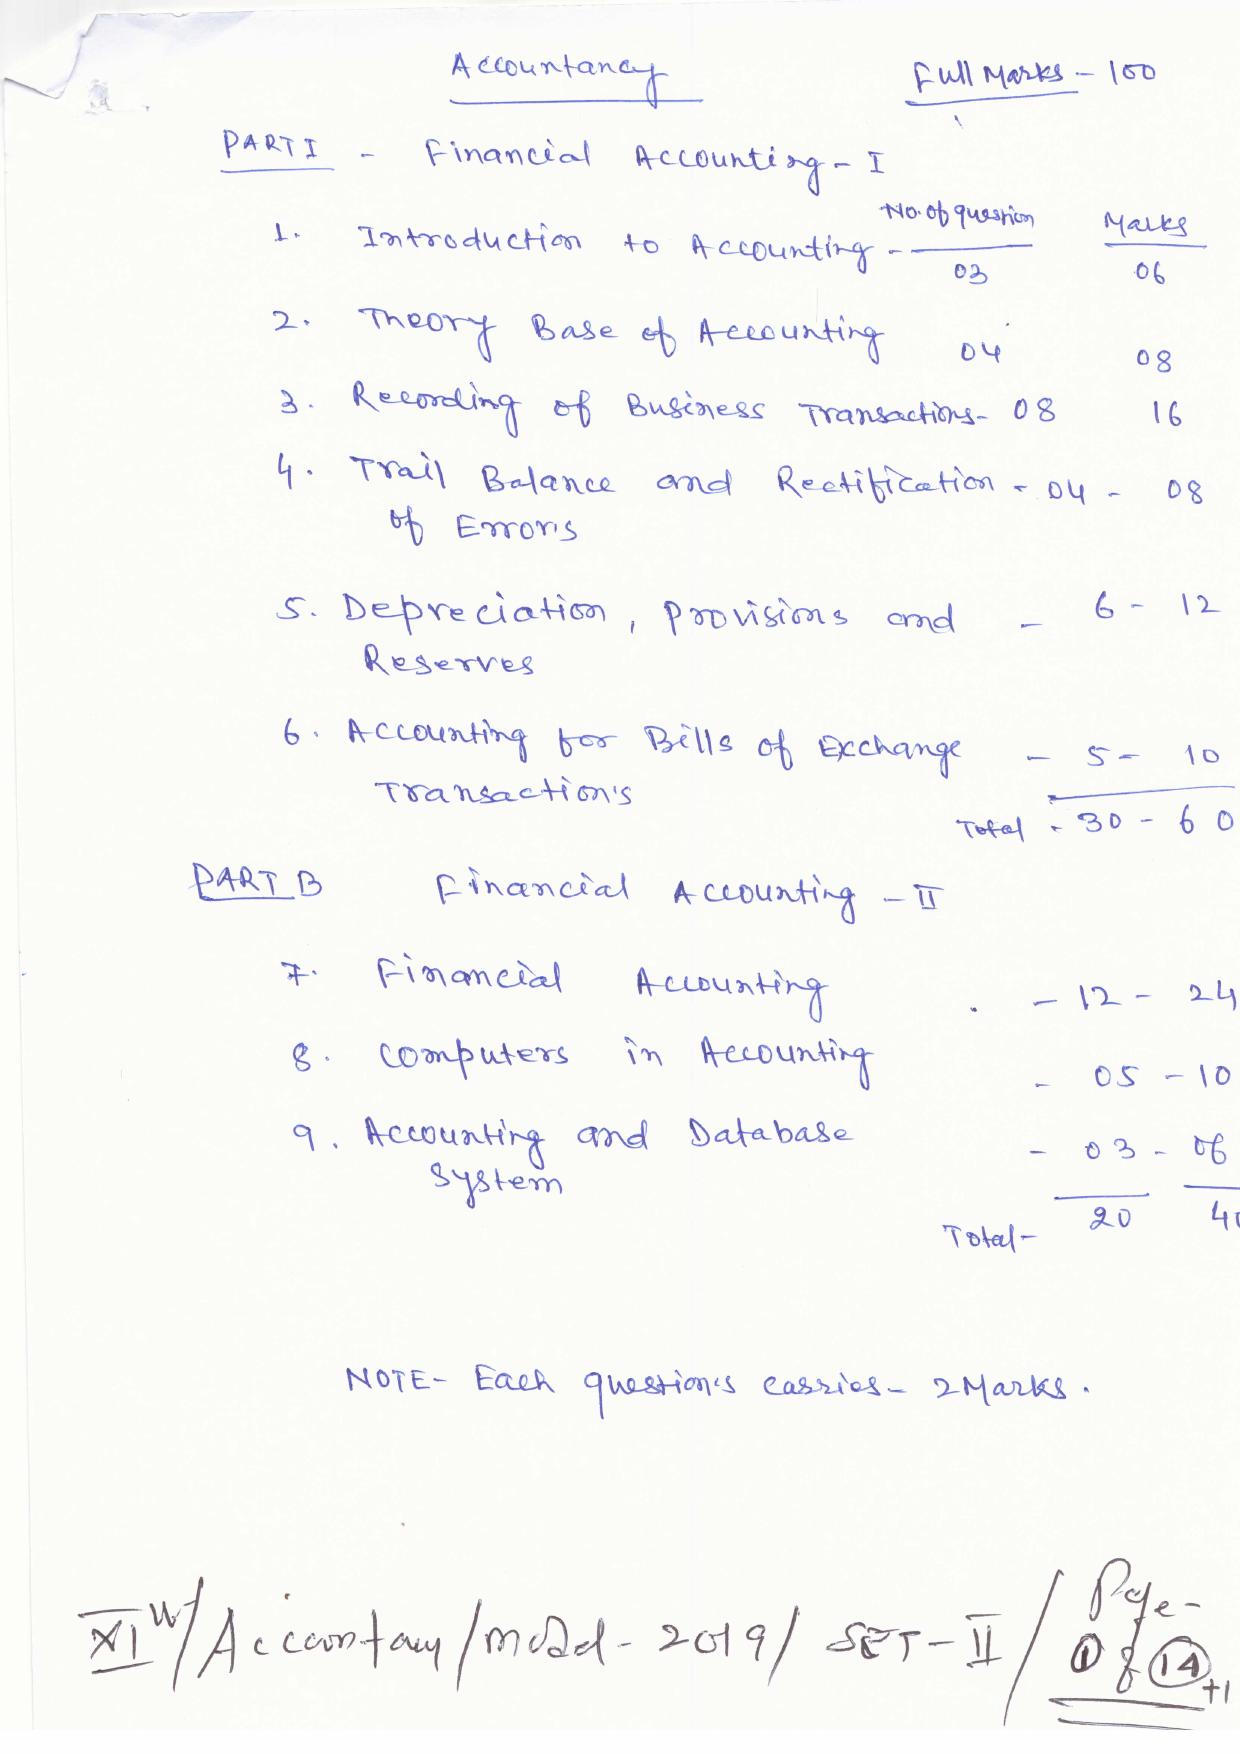 Accountancy Full Marks - 100
PART I - Financial Accounting - I
No. of question Marks
1. Introduction to Accounting - 03 06
2. Theory Base of Accounting 04 08
3. Recording of Business Transactions - 08 16
4. Trail Balance and Rectification - 04 - 08
of Errors
5. Depreciation, Provisions and - 6 - 12
Reserves
6. Accounting for Bills of Exchange - 5 - 10
Transaction's
Total - 30 - 60
PART B Financial Accounting - II
7. Financial Accounting - 12 - 24
8. Computers in Accounting - 05 - 10
9. Accounting and Database - 03 - 06
System
Total - 20
NOTE - Each question's carries - 2 Marks.
Page -
XI / Accountancy / Model - 2019 / SET - II / 1 of 14 +1